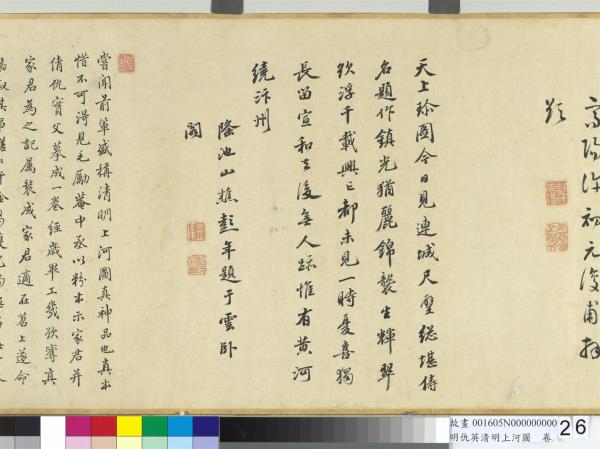 高陽許初元復甫拜
題
天上珍圖今日見連城尺璧總堪傳
名題作鎮光猶麗錦襲生輝翠
欲浮千載興亡都未見一時憂喜獨
長留宣和去後無人跡惟有黃河
繞汴州
隆池山樵彭年題于雲臥
閣
嘗聞前輩盛稱清明上河圖真神品也真本
惜不可得見毛勵菴中丞以粉本示家君并
倩仇實父摹成一卷經歲畢工幾欲奪真
家君為之記屬裝成家君適在茗上遂命
故畫 001605N000000000
明仇英清明上河圖 卷
26